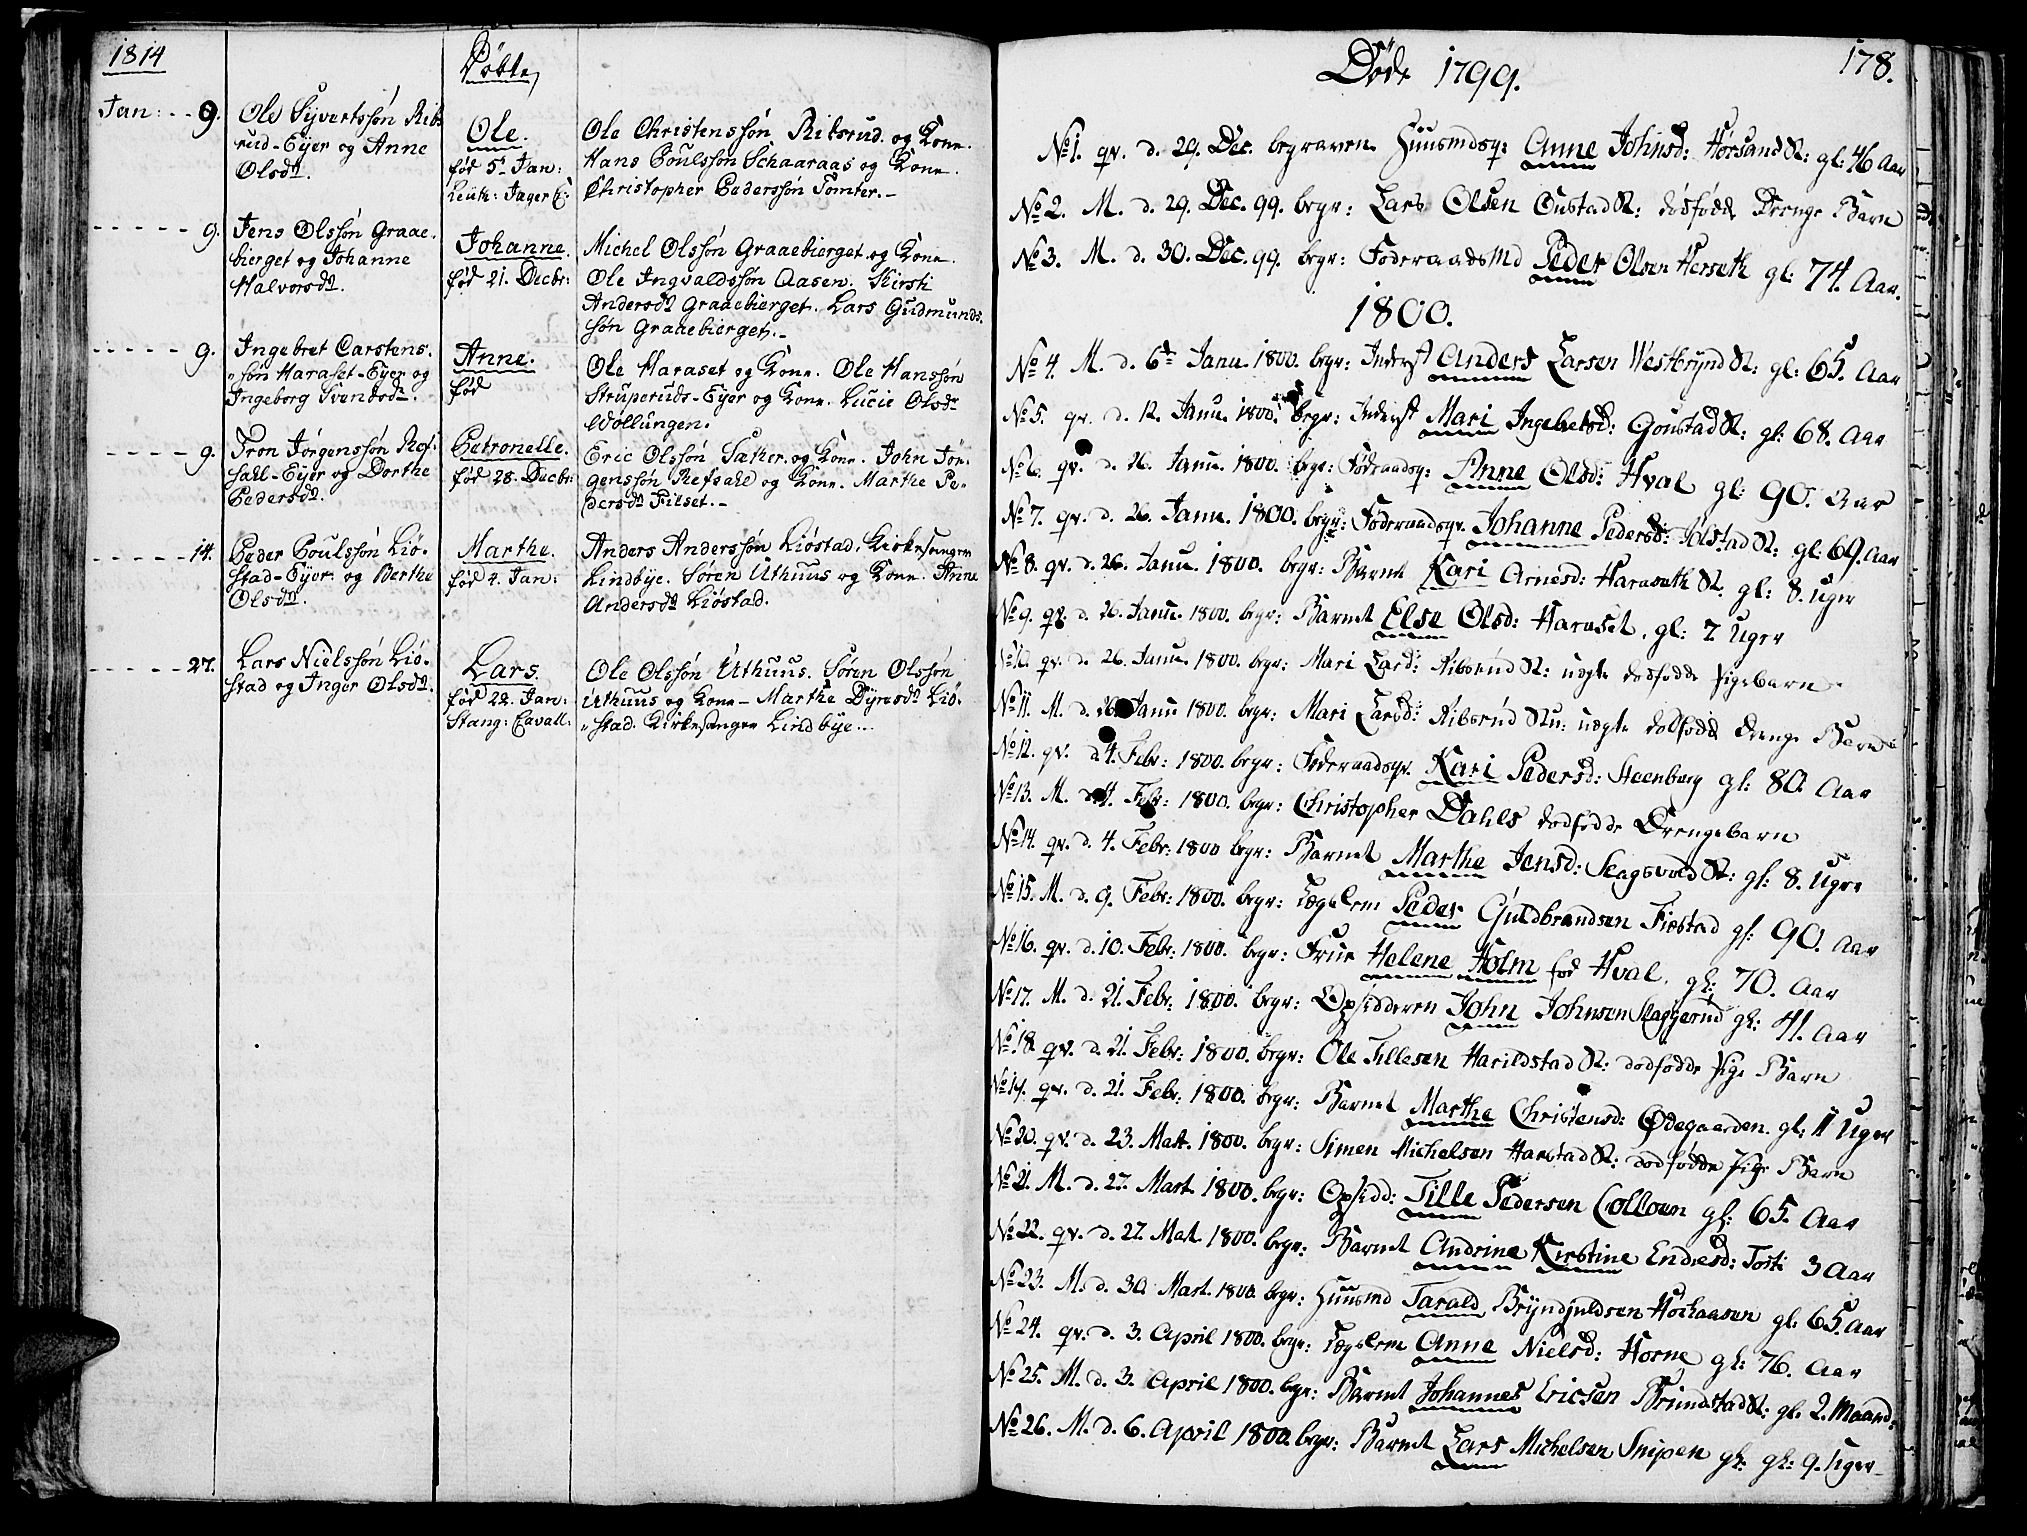 1814
Døbte
Jan: - - 9.
Ole Syvertssøn Ribs
rud-Eyer og Anne
Olsdr.
Ole.
fød 5te Jan:
Leuth: Jæger C:
Ole Christenssøn Ribsrud og Kone.
Hans Poulssøn Schaaraas og Kone.
Christopher Pederssøn Tomter.-
- - - - - 9.
Jens Olssøn Graae-
bierget og Johanne
Halvorsdr.
Johanne.
fød 21. Decbr:
Michel Olssøn Graaebierget og Kone.
Ole Ingvaldssøn Aasen. Kirsti
Andersdr Graaebierget. Lars Gudmunds-
søn Graaebierget.-
- - - - - 9.
Ingebret Carstens-
søn Haraset-Eyer og
Ingeborg Svendsdr.
Anne.
fød
Ole Haraset og Kone. Ole Hanssøn
Struperuds-Eyer og Kone. Lucie Olsdr
Wollungen.
- - - - - 9.
Tron Jørgenssøn Ref-
sahl-Eyer og Dorthe
Pedersdr.
Petronelle.
fød 28. Decbr:
Eric Olssøn Sæther og Kone. John Jør-
genssøn Refsahl og Kone. Marthe Pe-
dersdr Pilset.-
- - - - - 14.
Peder Poulssøn Liø-
stad-Eyer og Berthe
Olsdr.
Marthe.
fød 4. Jan:
Anders Anderssøn Liøstad, Kirkesanger
Lindbye. Søren Uthuus og Kone. Anne
Andersdr Liøstad.
- - - - - 27.
Lars Nielssøn Liø-
stad og Inger Olsdr.
Lars.
fød 22. Jan:
Stang: Cavall:
Ole Olssøn Uthuus. Søren Olssøn
Uthuus og Kone - Marthe Dyresdr Liø-
stad. Kirkesanger Lindbye...
178.
Døde 1799.
No 1. qv. d. 29. Dec. begraven Huusmdsqv: Anne Johnsd: Horsand St: gl: 46 Aar
No 2. M. d. 29. Dec. 99. begr: Lars Olsen Oustad St: dødfødde Drenge Barn
No 3. M. d. 30. Dec. 99. begr: Foderaadsmd Peder Olsen Herseth gl: 74. Aar.
1800.
No 4. M. d. 6te Janu. 1800. begr: Inderst Anders Larsen Westbrynd St: gl: 65. Aar
No 5. qv. d. 12. Janu. 1800. begr: Inderst Mari Ingebretsd: Goustad St: gl: 68. Aar
No 6. qv. d. 26. Janu. 1800. begr: Føderaadsqv: Anne Olsd: Hval gl: 90. Aar
No 7. qv. d. 26. Janu. 1800. begr: Føderaadsqv. Johanne Pedersd: Jølstad St: gl: 69. Aar
No 8. qv. d. 26. Janu. 1800. begr: Barnet Kari Arnesd: Haraseth St. gl: 8. Uger
No 9. qv. d. 26. Janu. 1800. begr: Barnet Else Olsd: Haraset. gl: 7 Uger
No 10. qv. d. 26. Janu. 1800. begr: Mari Larsd: Ribsrud St: uægte dødfødde Pigebarn
No 11. M. d. 26. Janu 1800. begr: Mari Larsd: Ribsrud St: uægte dødfødde Drenge Barn
No 12. qv. d 4. Febr: 1800. begr: Foderaadsqv. Kari Pedersd: Steenberg gl: 80. Aar
No 13. M. d. 4. Febr: 1800. begr: Christopher Dahls dødfødde Drengebarn
No 14. qv. d. 4. Febr: 1800 begr: Barnet Marthe Jensd: Skagsvold St: gl: 8. Uger
No 15. M. d. 9. Febr: 1800. begr: Lægslem Peder Guldbrandsen Fiæstad gl: 90. Aar
No 16. qv. d. 10. Febr: 1800. begr: Frue Helene Holm fød Hval. gl: 70. Aar
No 17. M. d. 21. Febr: 1800. begr: Opsidderen John Johnsen Slaggerud gl: 41. Aar
No 18. qv. d. 21. Febr: 1800. begr: Ole Tillesen Harildstad St: dødfødde Pige Barn
No 19. qv. d. 21. Febr: 1800. begr: Barnet Marthe Christensd: Ødegaarden. gl: 11 Uger
No 20. qv. d. 23. Mart. 1800. begr: Simen Michelsen Harstad St: dødfødde Pige Barn
No 21. M. d. 27. Mart. 1800. begr: Opsidd: Tille Pedersen Colloen gl: 65. Aar
No 22. qv. d. 27. Mart. 1800. begr: Barnet Andrine Kirstine Endresd: Tosti 3 Aar
No 23. M. d. 30. Mart. 1800. begr: Huusmd Tarald Bryndjuldsen Hochaasen gl: 65. Aar
No 24. qv. d. 3. April 1800. begr: Lægslem Anne Nielsd: Horne gl: 76. Aar
No 25. M. d. 3. April 1800. begr: Barnet Johannes Ericsen Brundstad St. gl. 2. Maand:
No 26. M. d. 6. April 1800. begr: Barnet Lars Michelsen Snipen gl: gl: 9. Uger